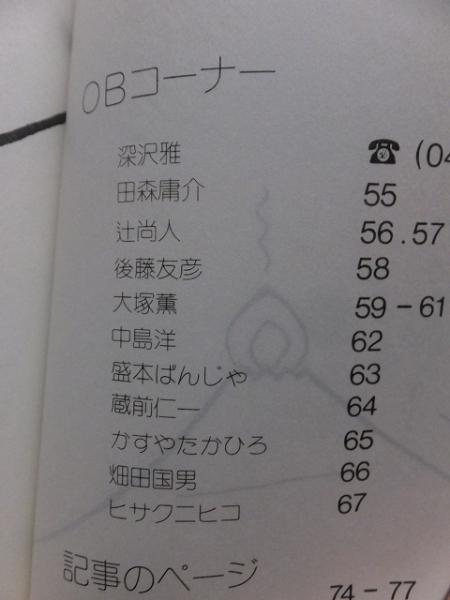 OBコーナー
深沢雅 ☎ (04
田森庸介 55
辻尚人 56.57
後藤友彦 58
大塚薫 59-61
中島洋 62
盛本ばんじゃ 63
蔵前仁一 64
かすやたかひろ 65
畑田国男 66
ヒサクニヒコ 67
記事のページ
74-77